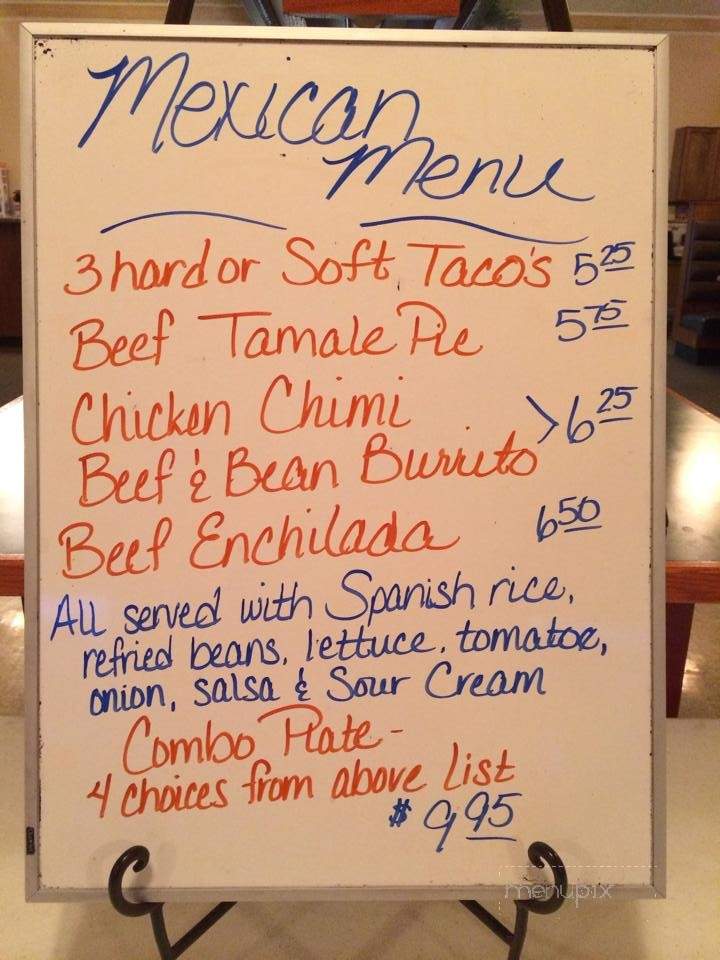 Mexican
Menu
3 hard or Soft Taco's 5 25
Beef Tamale Pie 5 75
Chicken Chimi
>6 25
Beef & Bean Burrito
Beef Enchilada 6 50
All served with Spanish rice,
refried beans, lettuce, tomatoe,
onion, salsa & Sour Cream
Combo Plate -
4 choices from above List
$ 9 95
menupix